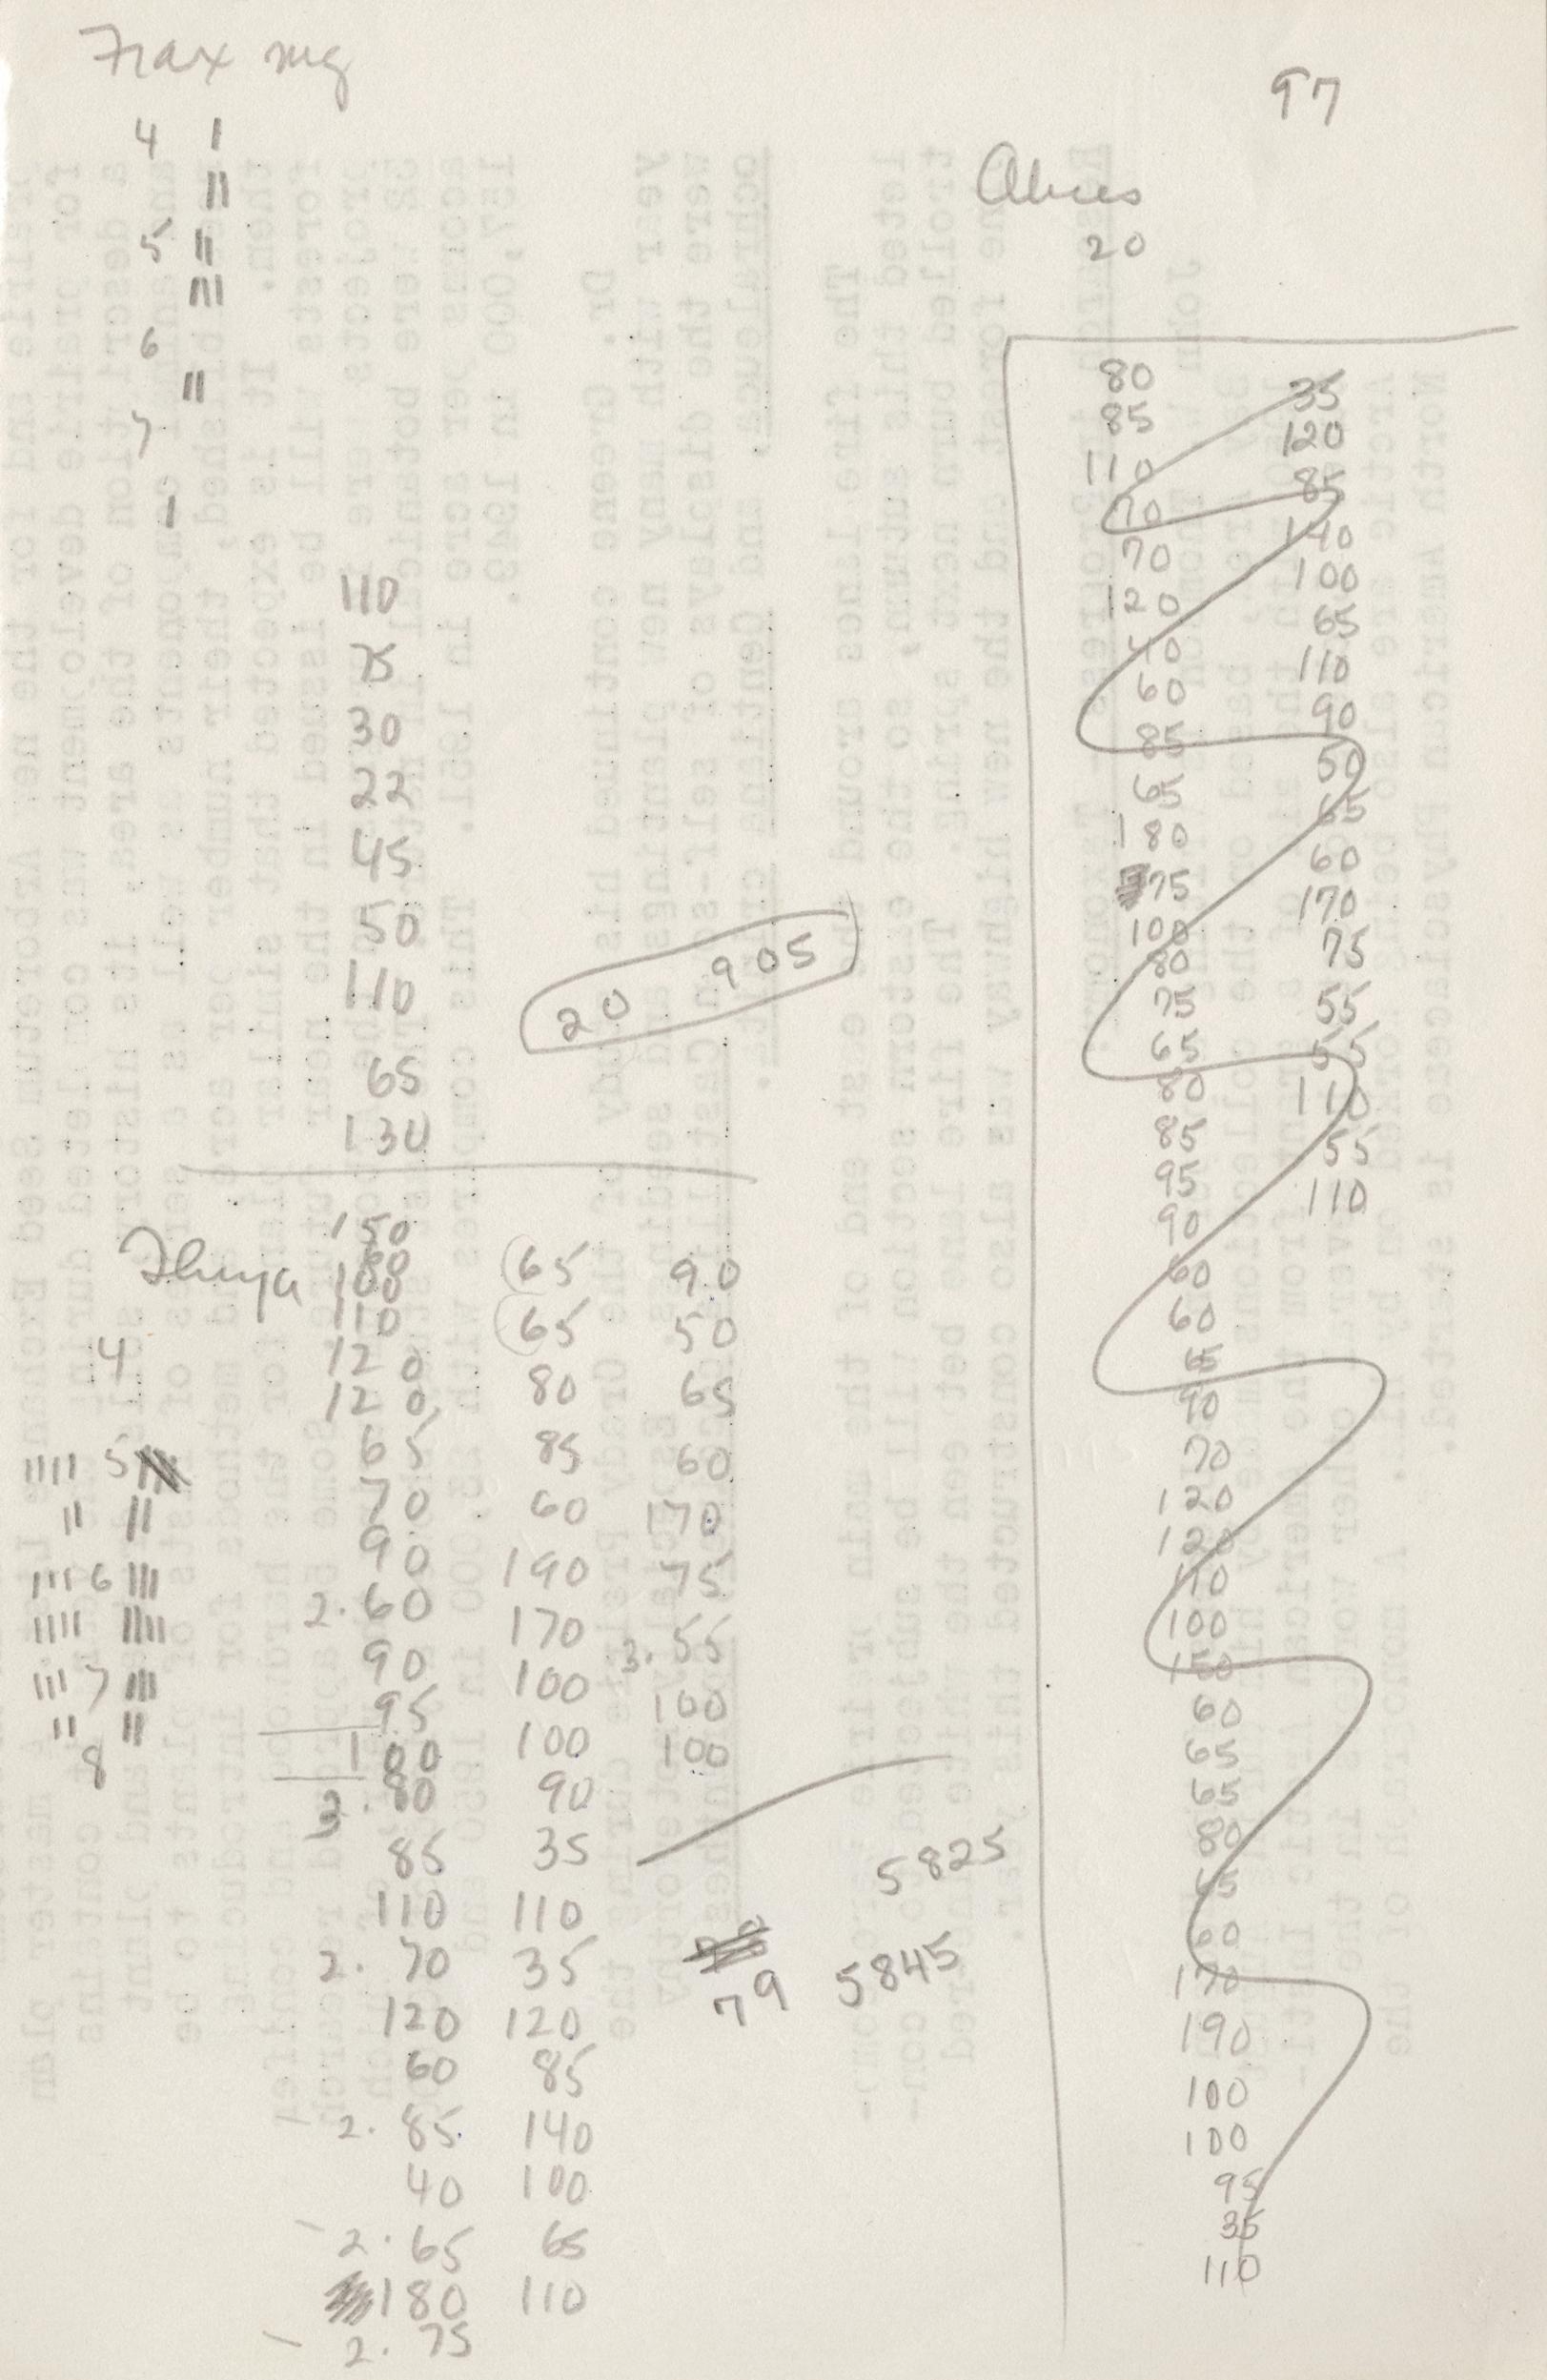 Frax mg
4 I
II
5 II
III
6
II
7
I
110
75
30
22
45
50
110
65
130
20 905
Thuya
4
IIII 5
II II
III 6 III
IIII IIII
III 7 III
II II
8
150
100
110
120
120
65
70
90
2. 60
90
95
100
3. 80
85
110
2. 70
120
60
2. 85
40
2. 65
180
2. 75
65
65
80
85
60
190
170
100
100
90
35
110
35
120
85
140
100
65
110
90
50
65
60
170
75
3. 55
100
100
5825
79 5845
97
20
80
85
110
70
70
120
40
60
85
65
180
75
100
80
75
65
80
85
95
90
60
60
65
90
70
120
120
110
100
150
60
65
65
80
65
60
170
190
100
100
95
35
110
35
120
85
140
100
65
110
90
50
65
60
170
75
55
55
110
55
110